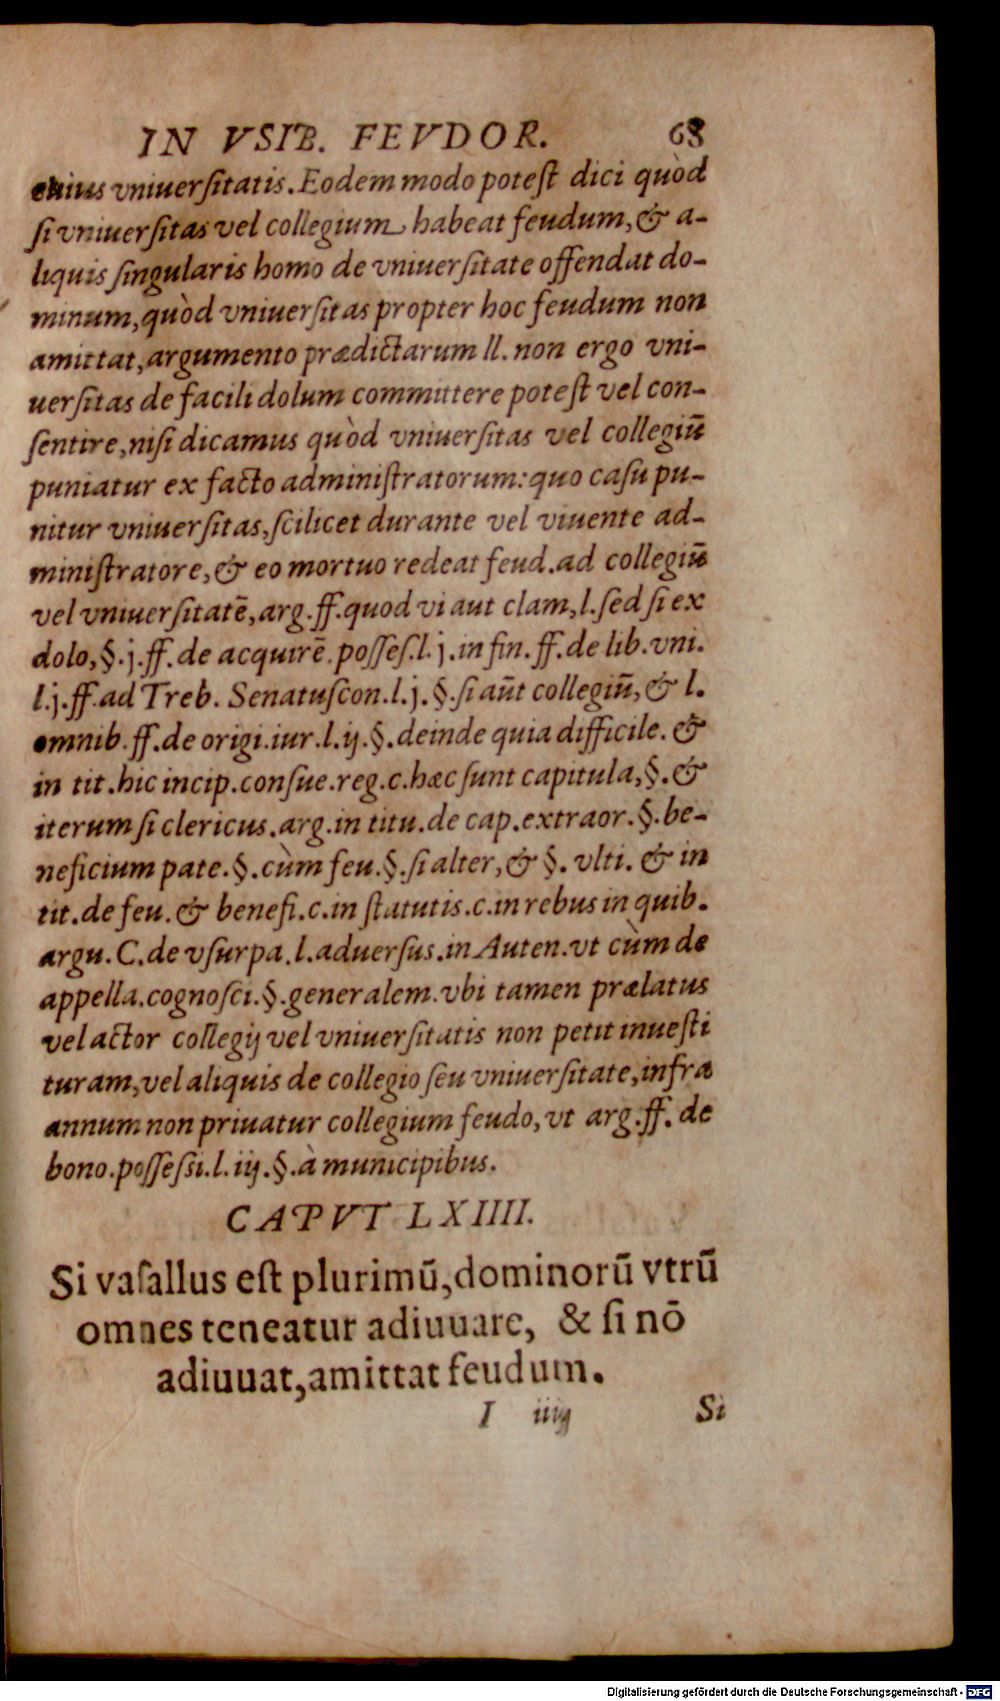 IN VSIB. FEVDOR. 68
cuius vniuersitatis. Eodem modo potest dici quòd
si vniuersitas vel collegium habeat feudum, & a-
liquis singularis homo de vniuersitate offendat do-
minum, quòd vniuersitas propter hoc feudum non
amittat, argumento prædictarum ll. non ergo vni-
uersitas de facili dolum committere potest vel con-
sentire, nisi dicamus quòd vniuersitas vel collegiũ
puniatur ex facto administratorum: quo casu pu-
nitur vniuersitas, scilicet durante vel viuente ad-
ministratore, & eo mortuo redeat feud. ad collegiũ
vel vniuersitatē, arg. ff. quod vi aut clam, l. sed si ex
dolo, §. j. ff. de acquirē. posses. l. j. in fin. ff. de lib. vni.
l. j. ff. ad Treb. Senatuscon. l. j. §. si aũt collegiũ, & l.
omnib. ff. de origi. iur. l. ij. §. deinde quia difficile. &
in tit. hic incip. consue. reg. c. hæc sunt capitula, §. &
iterum si clericus. arg. in titu. de cap. extraor. §. be-
neficium pate. §. cùm feu. §. si alter, & §. vlti. & in
tit. de feu. & benefi. c. in statutis. c. in rebus in quib.
argu. C. de vsurpa. l. aduersus. in Auten. vt cùm de
appella. cognosci. §. generalem. vbi tamen prælatus
vel actor collegij vel vniuersitatis non petit inuesti
turam, vel aliquis de collegio seu vniuersitate, infra
annum non priuatur collegium feudo, vt arg. ff. de
bono. possessi. l. iij. §. à municipibus.
CAPVT LXIIII.
Si vasallus est plurimũ, dominorũ vtrũ
omnes teneatur adiuuare, & si nō
adiuuat, amittat feudum.
I iiij Si
Digitalisierung gefördert durch die Deutsche Forschungsgemeinschaft - DFG